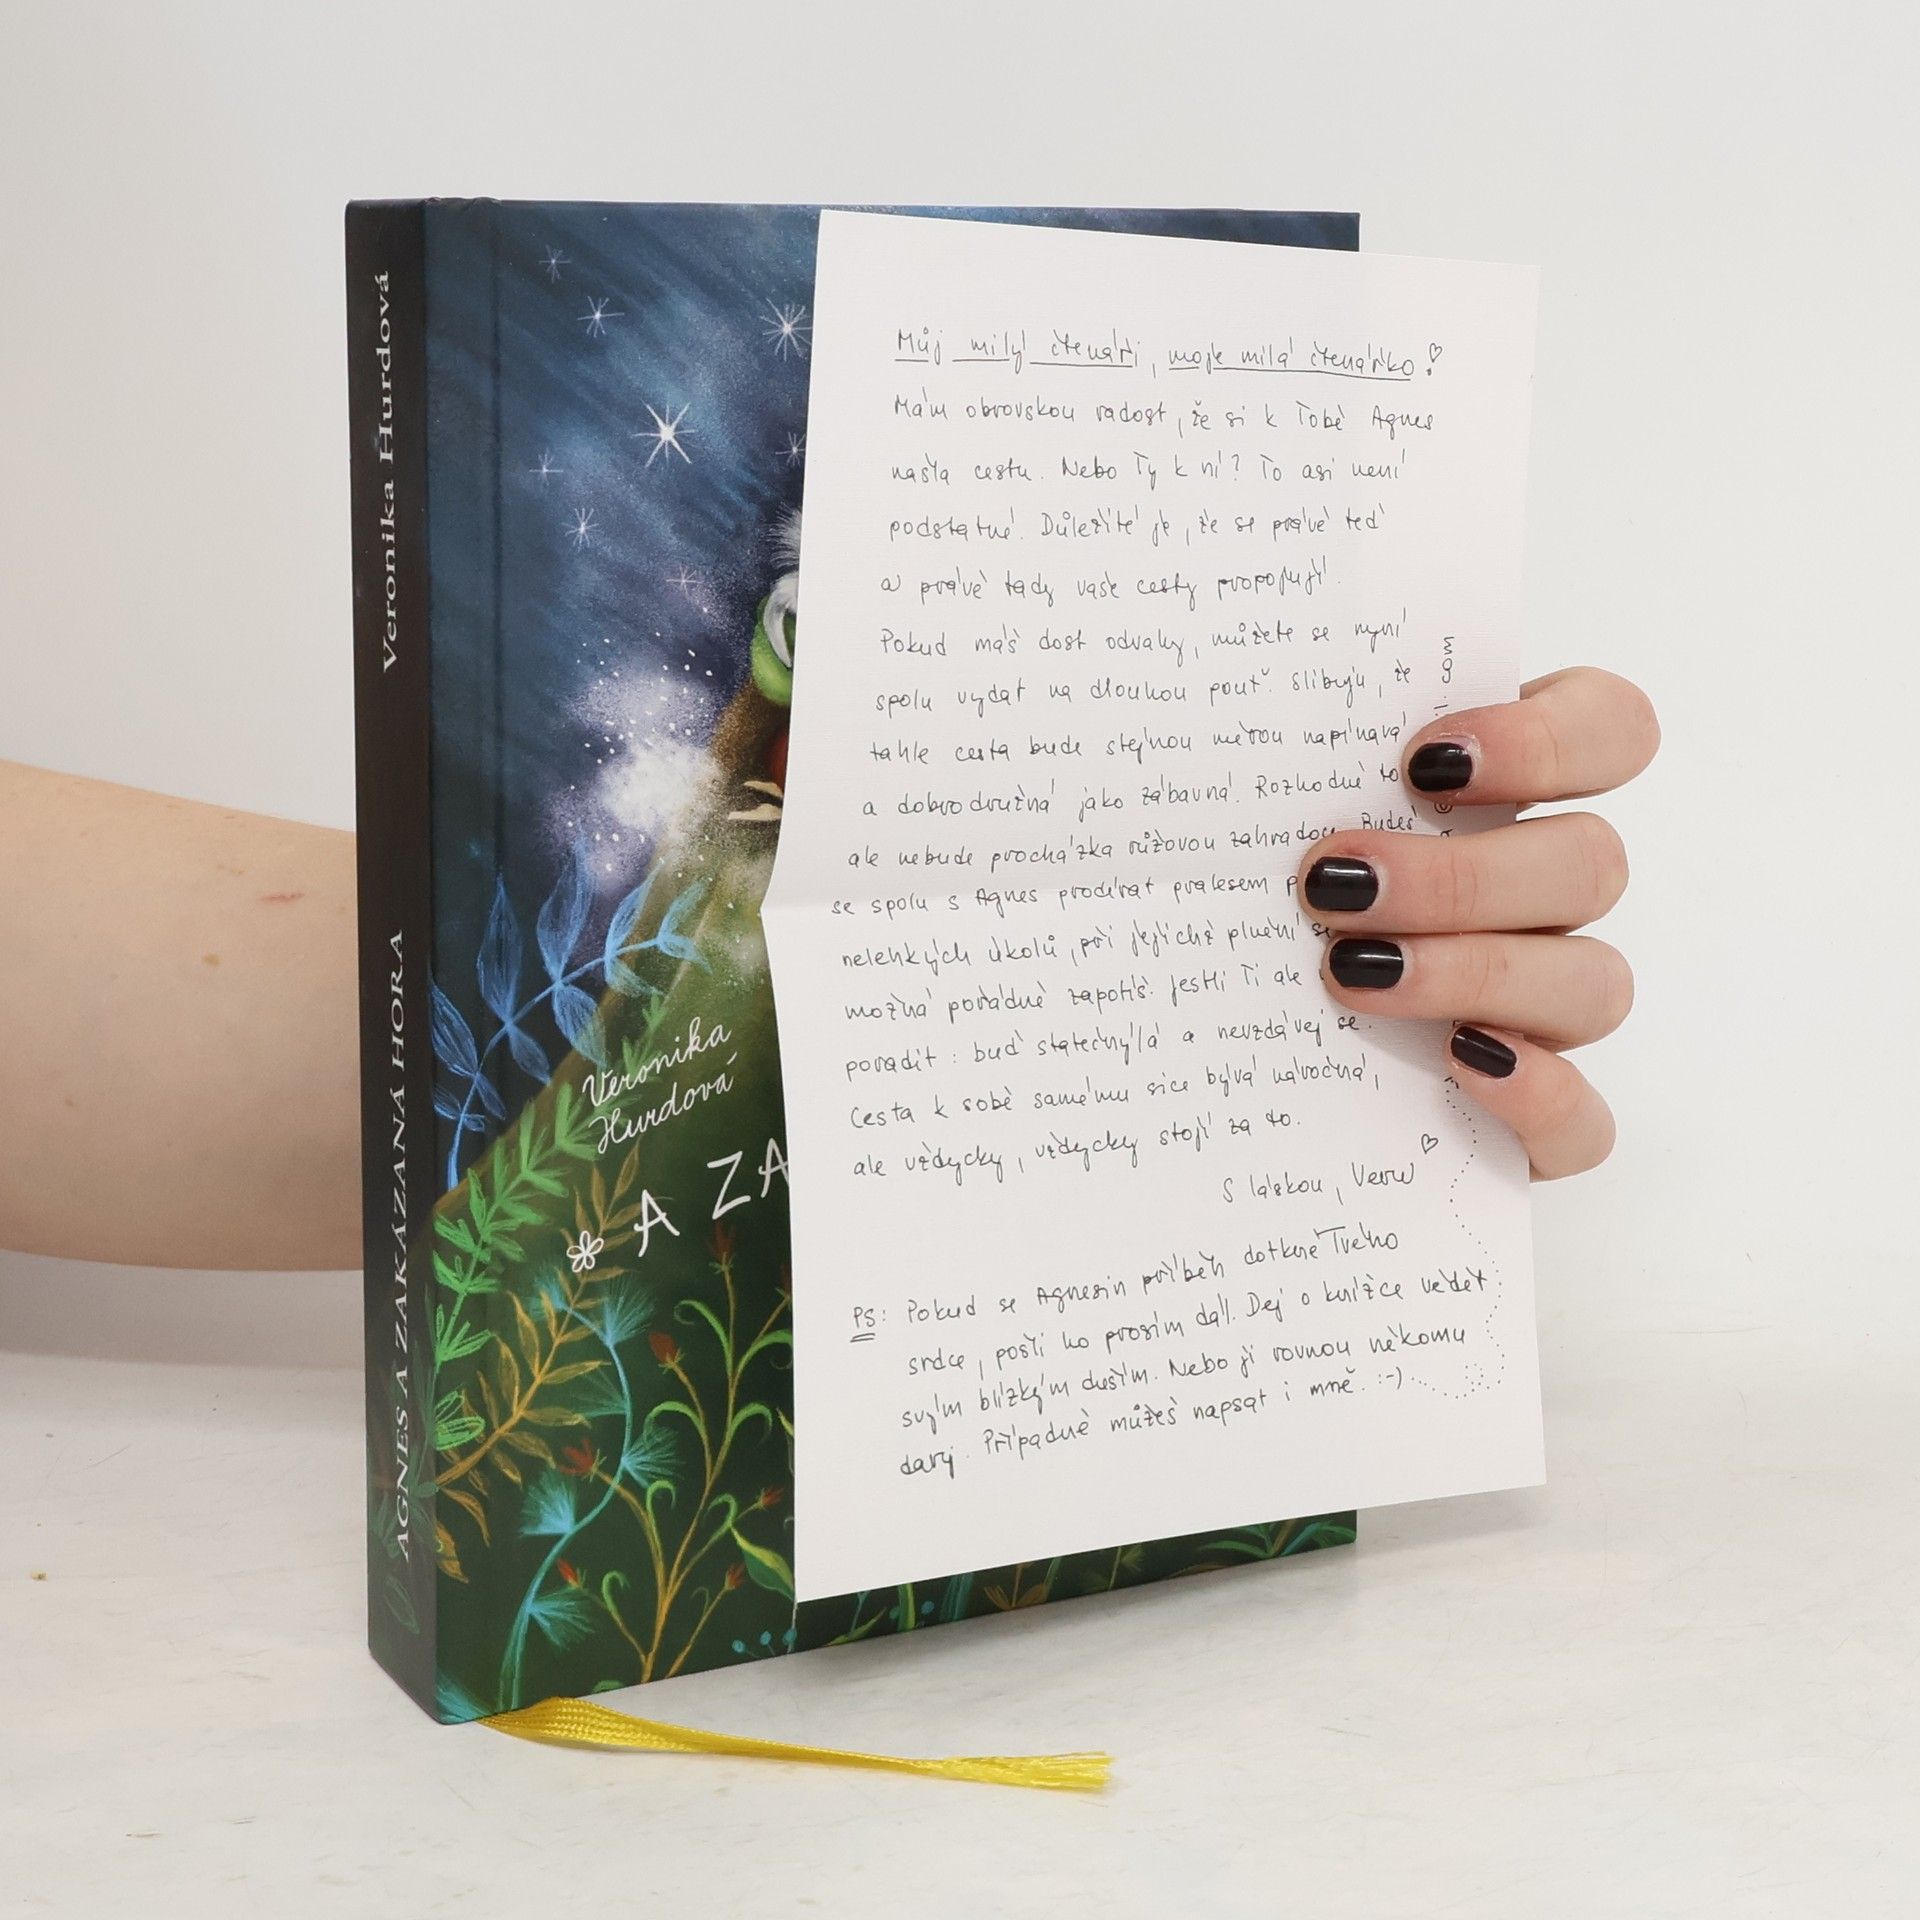 Veronika Hurdová
AGNES A ZAKÁZANÁ HORA
Veronika
Hurdová
A ZA
Můj milý čtenáři, moje milá čtenářko!
Mám obrovskou radost, že si k Tobě Agnes
našla cestu. Nebo Ty k ní? To asi není
podstatné. Důležité je, že se právě teď
a právě tady vaše cesty propojují.
Pokud máš dost odvahy, můžete se nyní
spolu vydat na dlouhou pouť. Slibuju, že
tahle cesta bude stejnou měrou napínavá
a dobrodružná jako zábavná. Rozhodně to
ale nebude procházka růžovou zahradou. Budeš
se spolu s Agnes prodírat pralesem
nelehkých úkolů, při jejichž plnění se
možná pořádně zapotíš. Jestli Ti ale
poradit: buď statečný/á a nevzdávej se.
Cesta k sobě samému sice bývá náročná,
ale vždycky, vždycky stojí za to.
S láskou, Veru
PS: Pokud se Agnesin příběh dotkne Tvého
srdce, pošli ho prosím dál. Dej o knížce vědět
svým blízkým duším. Nebo ji rovnou někomu
daruj. Případně můžeš napsat i mně. :-)